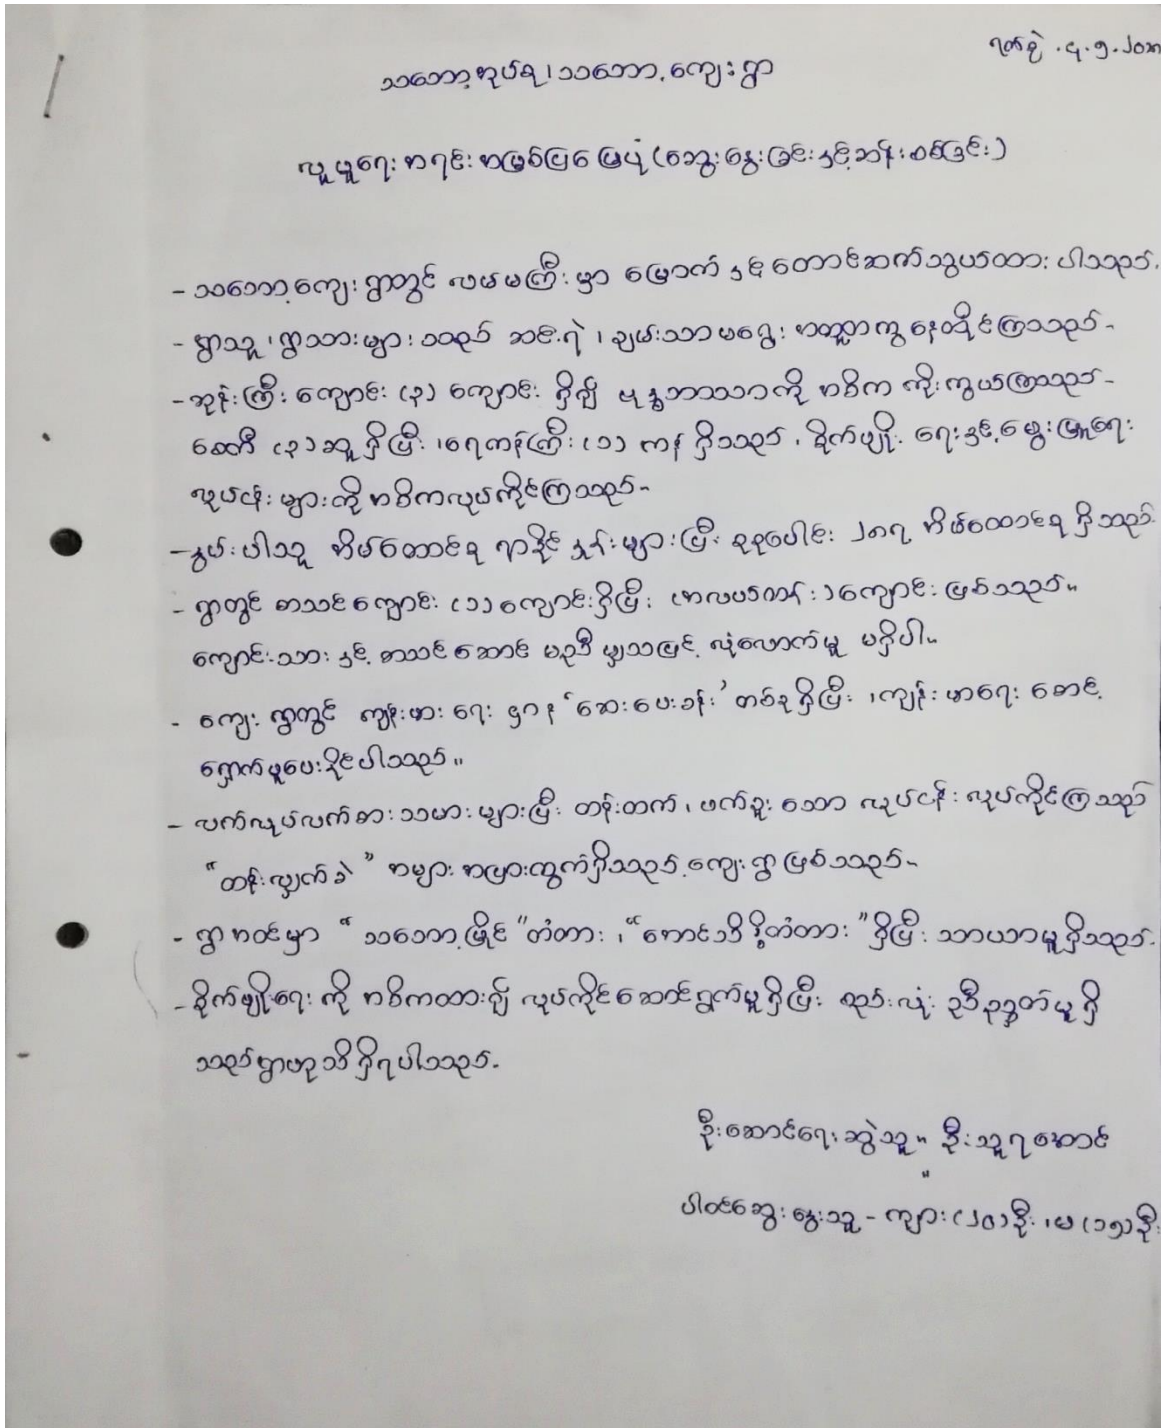 ရက်စွဲ . ၄ . ၅ . ၂၀၁၈
သဘော့အုပ်စု၊ သဘော့ကျေးရွာ
လူမှုရေး အရင်းအမြစ်ပြမြေပုံ (ဆွေးနွေးခြင်းနှင့်ဆန်းစစ်ခြင်း)
- သဘော့ကျေးရွာတွင် လမ်းမကြီးမှာ မြောက်နှင့်တောင်ဆက်သွယ်ထားပါသည်.
- ရွာသူ၊ ရွာသားများသည် ဆင်းရဲ၊ ချမ်းသာမရွေး အတူတကွနေထိုင်ကြသည်-
- ဘုန်းကြီးကျောင်း (၃) ကျောင်း ရှိ၍ ဗုဒ္ဓဘာသာကို အဓိက ကိုးကွယ်ကြသည်-
စေတီ (၃)ဆူရှိပြီး ၊ရေကန်ကြီး (၁) ကန် ရှိသည် ၊ စိုက်ပျိုးရေးနှင့်မွေးမြူရေး
လုပ်ငန်းများကို အဓိကလုပ်ကိုင်ကြသည်-
- နွမ်းပါးသူ အိမ်ထောင်စု ရာခိုင်နှုန်းများပြီး စုစုပေါင်း ၂၈၇ အိမ်ထောင်စု ရှိသည်.
- ရွာတွင် စာသင်ကျောင်း (၁)ကျောင်းရှိပြီး (အလယ်တန်း)ကျောင်းဖြစ်သည်။
ကျောင်းသားနှင့် စာသင်ဆောင် မညီမျှသဖြင့် လုံလောက်မှု မရှိပါ။
- ကျေးရွာတွင် ကျန်းမာရေး ဌာန ‘ဆေးပေးခန်း’ တစ်ခုရှိပြီး ၊ကျန်းမာရေး စောင့်
ရှောက်မှုပေးနိုင်ပါသည်။
- လက်လုပ်လက်စားသမားများပြီး တန်းထက်၊ ဖက်ခူးသော လုပ်ငန်း လုပ်ကိုင်ကြသည်
“တန်းလျှက်ခဲ” အများအပြားထွက်ရှိသည့်ကျေးရွာဖြစ်သည်-
- ရွာအဝင်မှာ “သဘော့မြိုင်”တံတား၊ “အောင်သိဒ္ဓိတံတား”ရှိပြီး သာယာမှုရှိသည်.
- စိုက်ပျိုးရေးကို အဓိကထား၍ လုပ်ကိုင်ဆောင်ရွက်မှုရှိပြီး စည်းလုံးညီညွတ်မှုရှိ
သည့်ရွာဟုသိရှိရပါသည်.
ဦးဆောင်ရေးဆွဲသူ။ ဦးသူရအောင်
"
ပါဝင်ဆွေးနွေးသူ - ကျား(၂၀)ဦး၊မ(၁၅)ဦး